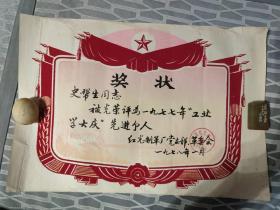 奖状
史帮生同志
被光荣评为一九七七年“工业
学大庆”先进个人
红光制革厂党支部、革委会
一九七八年一月